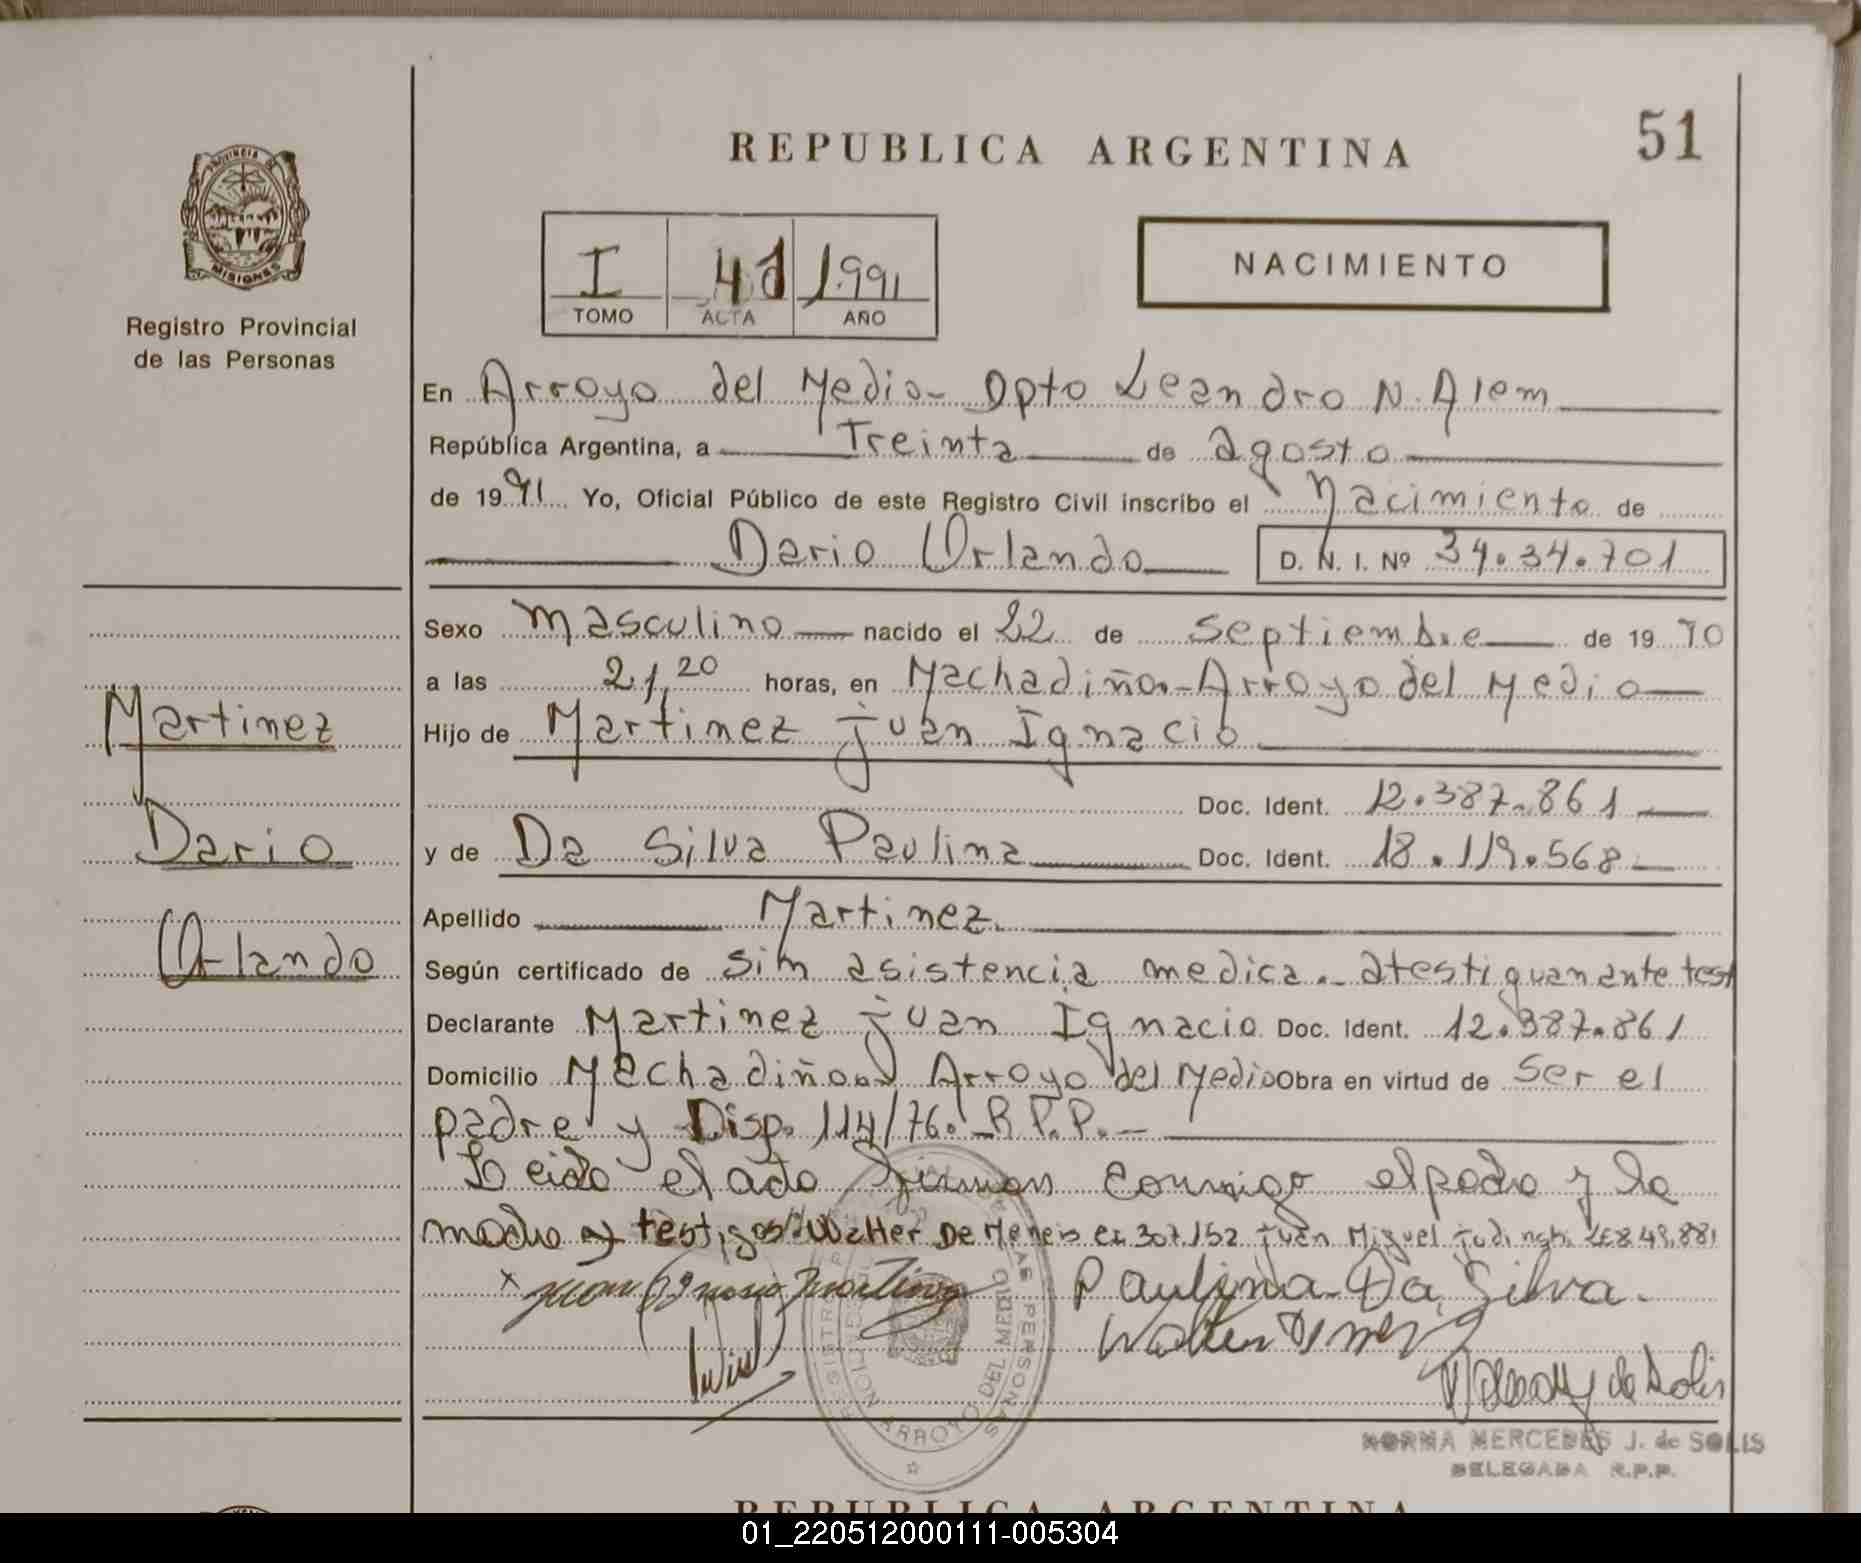 51
REPUBLICA ARGENTINA
PROVINCIA DE
MISIONES
Registro Provincial
de las Personas
I 41 1.991
TOMO ACTA AÑO
NACIMIENTO
En Arroyo del Medio- Dpto Leandro N. Alem
República Argentina, a Treinta de agosto
de 1991 Yo, Oficial Público de este Registro Civil inscribo el Nacimiento de
Dario Orlando D. N. I. Nº 34.34.701
Sexo masculino nacido el 22 de septiembre de 19
a las 21,20 horas, en Machadiño-Arroyo del Medio
Hijo de Martinez juan Ignacio
Doc. Ident. 12.387.861
y de Da Silva Paulina Doc. Ident. 18.119.568
Apellido Martinez
Según certificado de sin asistencia medica.- atestiguan ante test
Declarante Martinez juan Ignacio Doc. Ident. 12.387.861
Domicilio Machadiño Arroyo del Medio Obra en virtud de ser el
padre y Disp. 114/76.-R.P.P.-
Leido el acta firman conmigo el padre y la
madre y testigos: Walter De 307.152 juan Miguel
Martinez
Dario
Orlando
x juan Ignacio Martinez Paulina Da Silva.
Walter
de Solis
ARROYO DEL MEDIO
NORMA MERCEDES J. de SOLIS
DELEGADA R.P.P.
REPUBLICA ARGENTINA
01_220512000111-005304